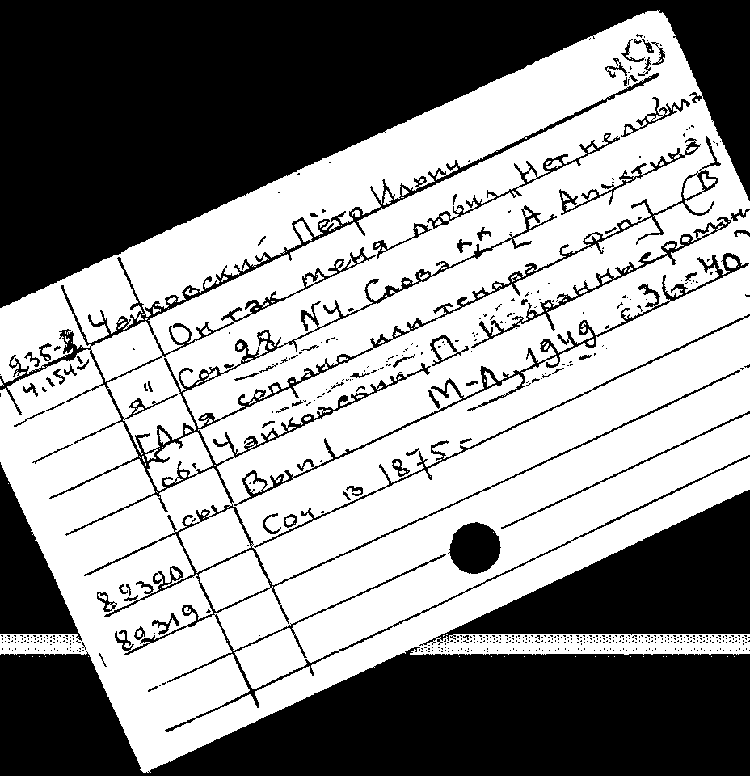 Чайковский, Пётр Ильич
235-
Ч.1541
Он так меня любил „Нет, не любила
я". Соч. 28, №4. Слова ** [А. Апухтина]
[Для сопрано или тенора с ф-п.] (В
сб: Чайковский, П. Избранные роман
сы. Вып 1. М-Л., 1949. с. 36-40
Соч. в 1875 г.
82320
82319.